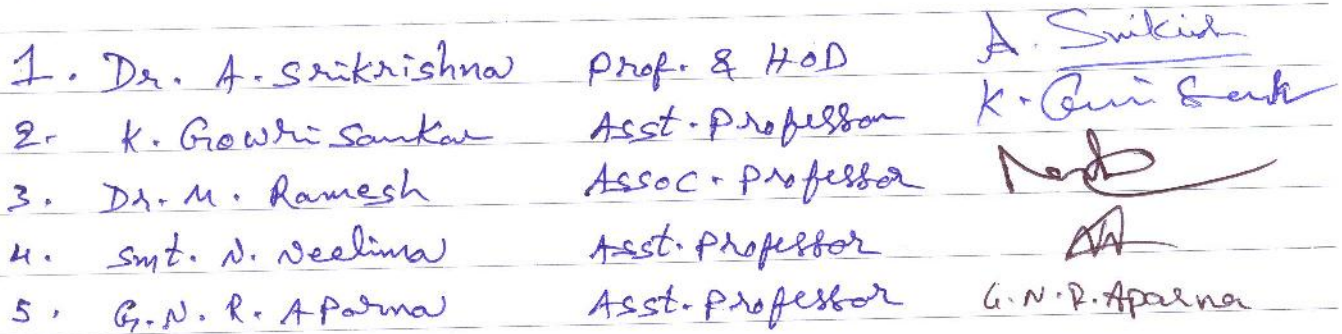 1. Dr. A. Srikrishna Prof. & HOD A. Srikish
2. K. Gowri Sankar Asst. Professor K. Gowri Sank
3. Dr. M. Ramesh Assoc. Professor
4. Smt. N. Neelima Asst. Professor
5. G.N.R. Aparna Asst. Professor G.N.R. Aparna